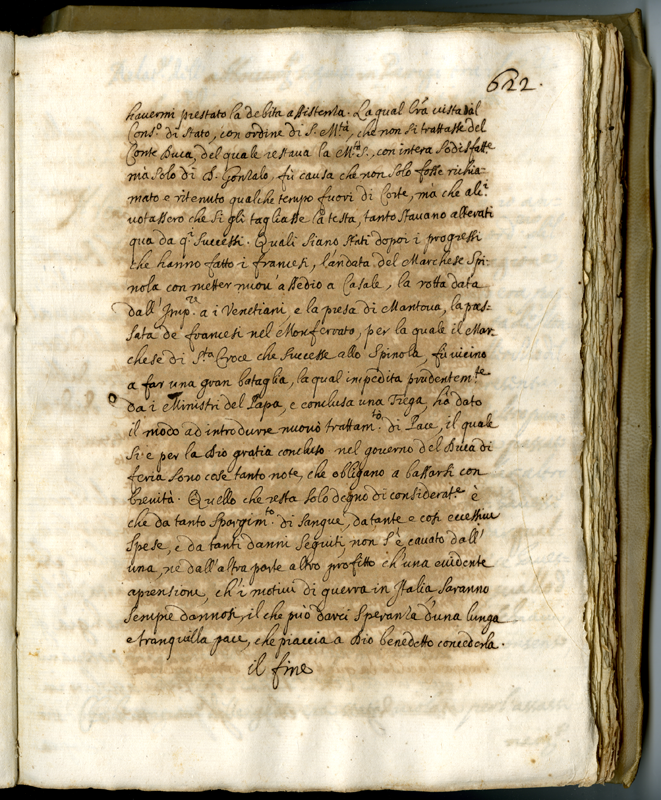 622.
havermi prestato la debita assistenza. La qual lra vista dal
Cons.o di Stato, con ordine di S. M.tà, che non si trattasse del
Conte Duca, del quale restava la M.tà S., con intera sodisfatt.e
mà solo di D. Gonzalo, fù causa che non solo fosse richia-
mato e ritenuto qualche tempo fuori di Corte, mà che al.i
votassero che si gli tagliasse la testa, tanto stavano alterati
qua da q.i successi. Quali siano stati dopoi i progressi
che hanno fatto i francesi, l'andata del Marchese Spi-
nola con metter nuou assedio a Casale, la rotta data
dall'Imp.ra a i Venetiani, e la presa di Mantova, la pas-
sata de francesi nel Monferrato, per la quale il Mar-
chese di S.ta Croce che successe allo Spinola, fù vicino
a far una gran battaglia, la qual impedita prudentem.te
da i Ministri del Papa, e conclusa una Triga, hò dato
il modo ad introdurre nuovò trattam.to di Pace, il quale
si è per la Dio gratia concluso nel governo del Duca di
feria sono cose tanto note, che obligano a bassarsi con
brevità. Quello che resta solo degno di considerat.e è
che da tanto spargim.to di sangue, da tante e così eccessive
spese, e da tanti danni seguiti, non s'è cavato dall'
una, nè dall'altra parte altro profitto ch'una evidente
aprensione, ch'i motivi di guerra in Italia saranno
sempre dannosi, il che può darci speranza d'una lunga
e tranquilla pace, che piaccia a Dio benedetto concederla.
il fine